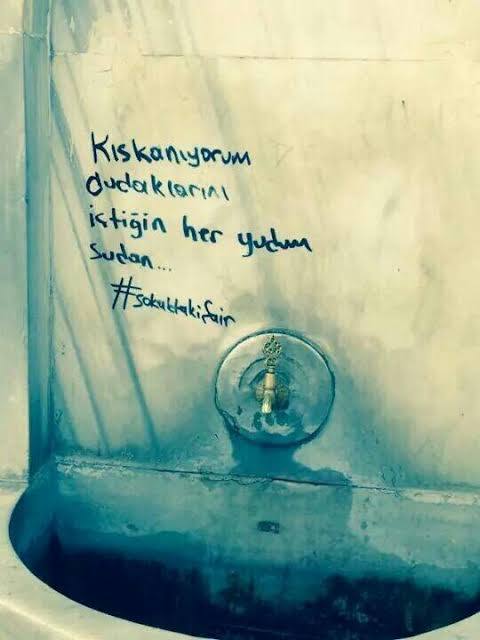 Kıskanıyorum
dudaklarını
içtiğin her yudum
sudan...
#sokaktakişair